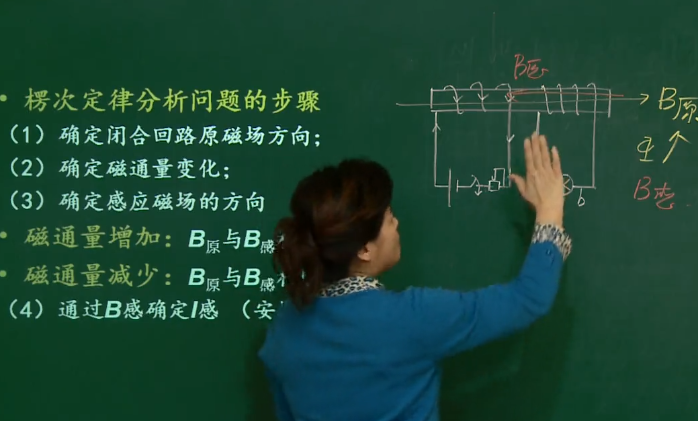 • 楞次定律分析问题的步骤
（1）确定闭合回路原磁场方向；
（2）确定磁通量变化；
（3）确定感应磁场的方向
• 磁通量增加：B原与B感
• 磁通量减少：B原与B感
（4）通过B感确定I感 （安
B感
B原
Φ
B感